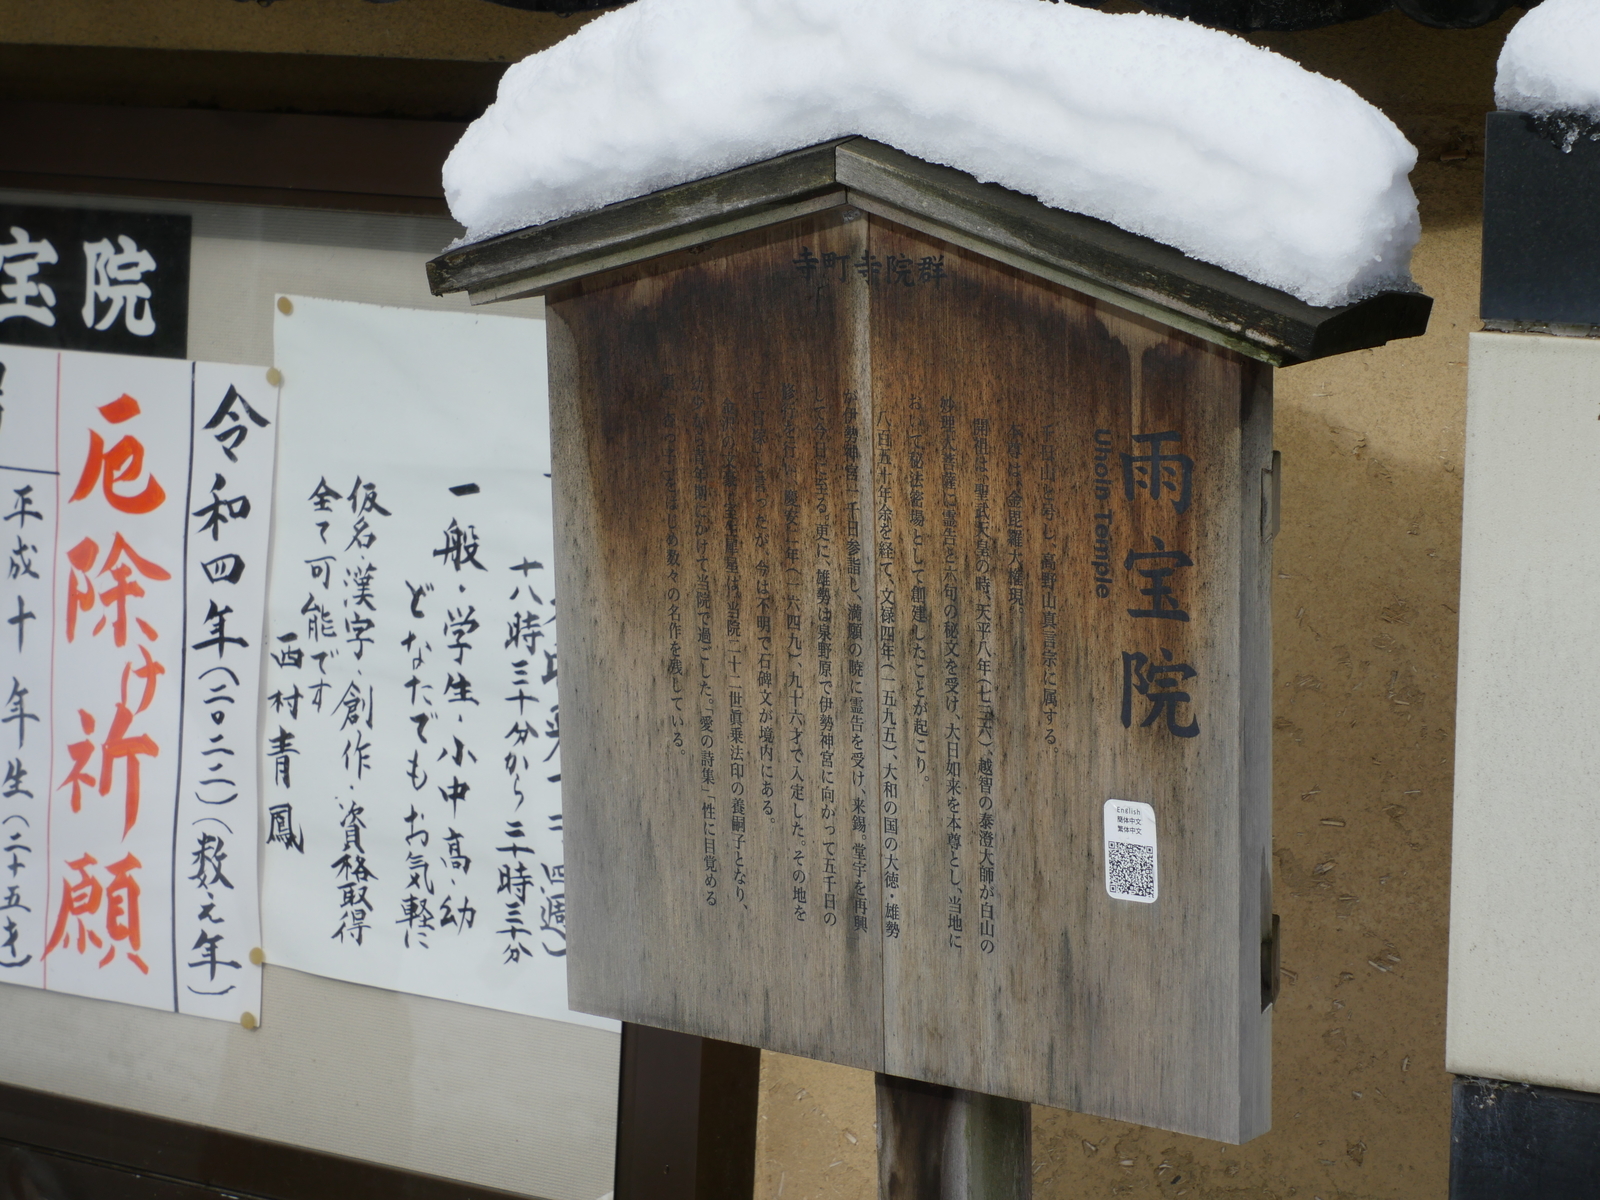 寺町寺院群
雨宝院
Uhoin Temple
千日山と号し、高野山真言宗に属する。
本尊は、金毘羅大権現。
開祖は、聖武天皇の時、天平八年(七三六)、越智の泰澄大師が白山の
妙理大菩薩に霊告と六句の秘文を受け、大日如来を本尊とし、当地に
おいて秘法密場として創建したことが起こり。
八百五十年余を経て、文禄四年(一五九五)、大和の国の大徳・雄勢
が伊勢神宮一千日参詣し、満願の暁に霊告を受け、来錫。堂宇を再興
して今日に至る。更に、雄勢は泉野原で伊勢神宮に向かって五千日の
修行を行い、慶安二年(一六四九)、九十六才で入定した。その地を
といったが、今は不明で石碑文が境内にある。
金沢の文豪・室生犀星は、当院二十二世眞乗法印の養嗣子となり、
幼少から青年期にかけて当院で過ごした。「愛の詩集」「性に目覚める
頃」をはじめ数々の名作を残している。
English
簡体中文
繁体中文
十八時三十分から二十時三十分
一般・学生・小中高・幼
どなたでもお気軽に
仮名・漢字・創作・資格取得
全て可能です
西村青鳳
宝院
令和四年(二〇二二)(数え年)
厄除け祈願
平成十年生(二十五才)